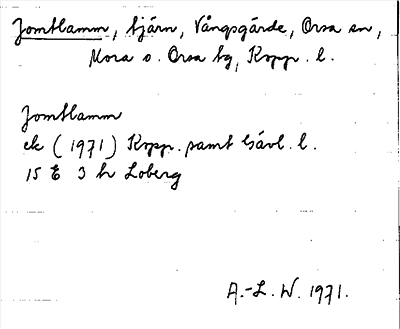 Jomthamm, tjärn, Vångsgärde, Orsa sn,
Mora o. Orsa tg, Kopp. l.
Jomthamm
ek (1971) Kopp. samt Gävl. l.
15 E 3 h Loberg
A.-L. W. 1971.